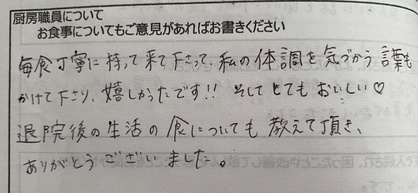 厨房職員について
お食事についてもご意見があればお書きください
毎食丁寧に持って来て下さって、私の体調を気づかう言葉も
かけて下さり、嬉しかったです!! そしてとてもおいしい♡
退院後の生活の食についても教えて頂き、
ありがとうございました。